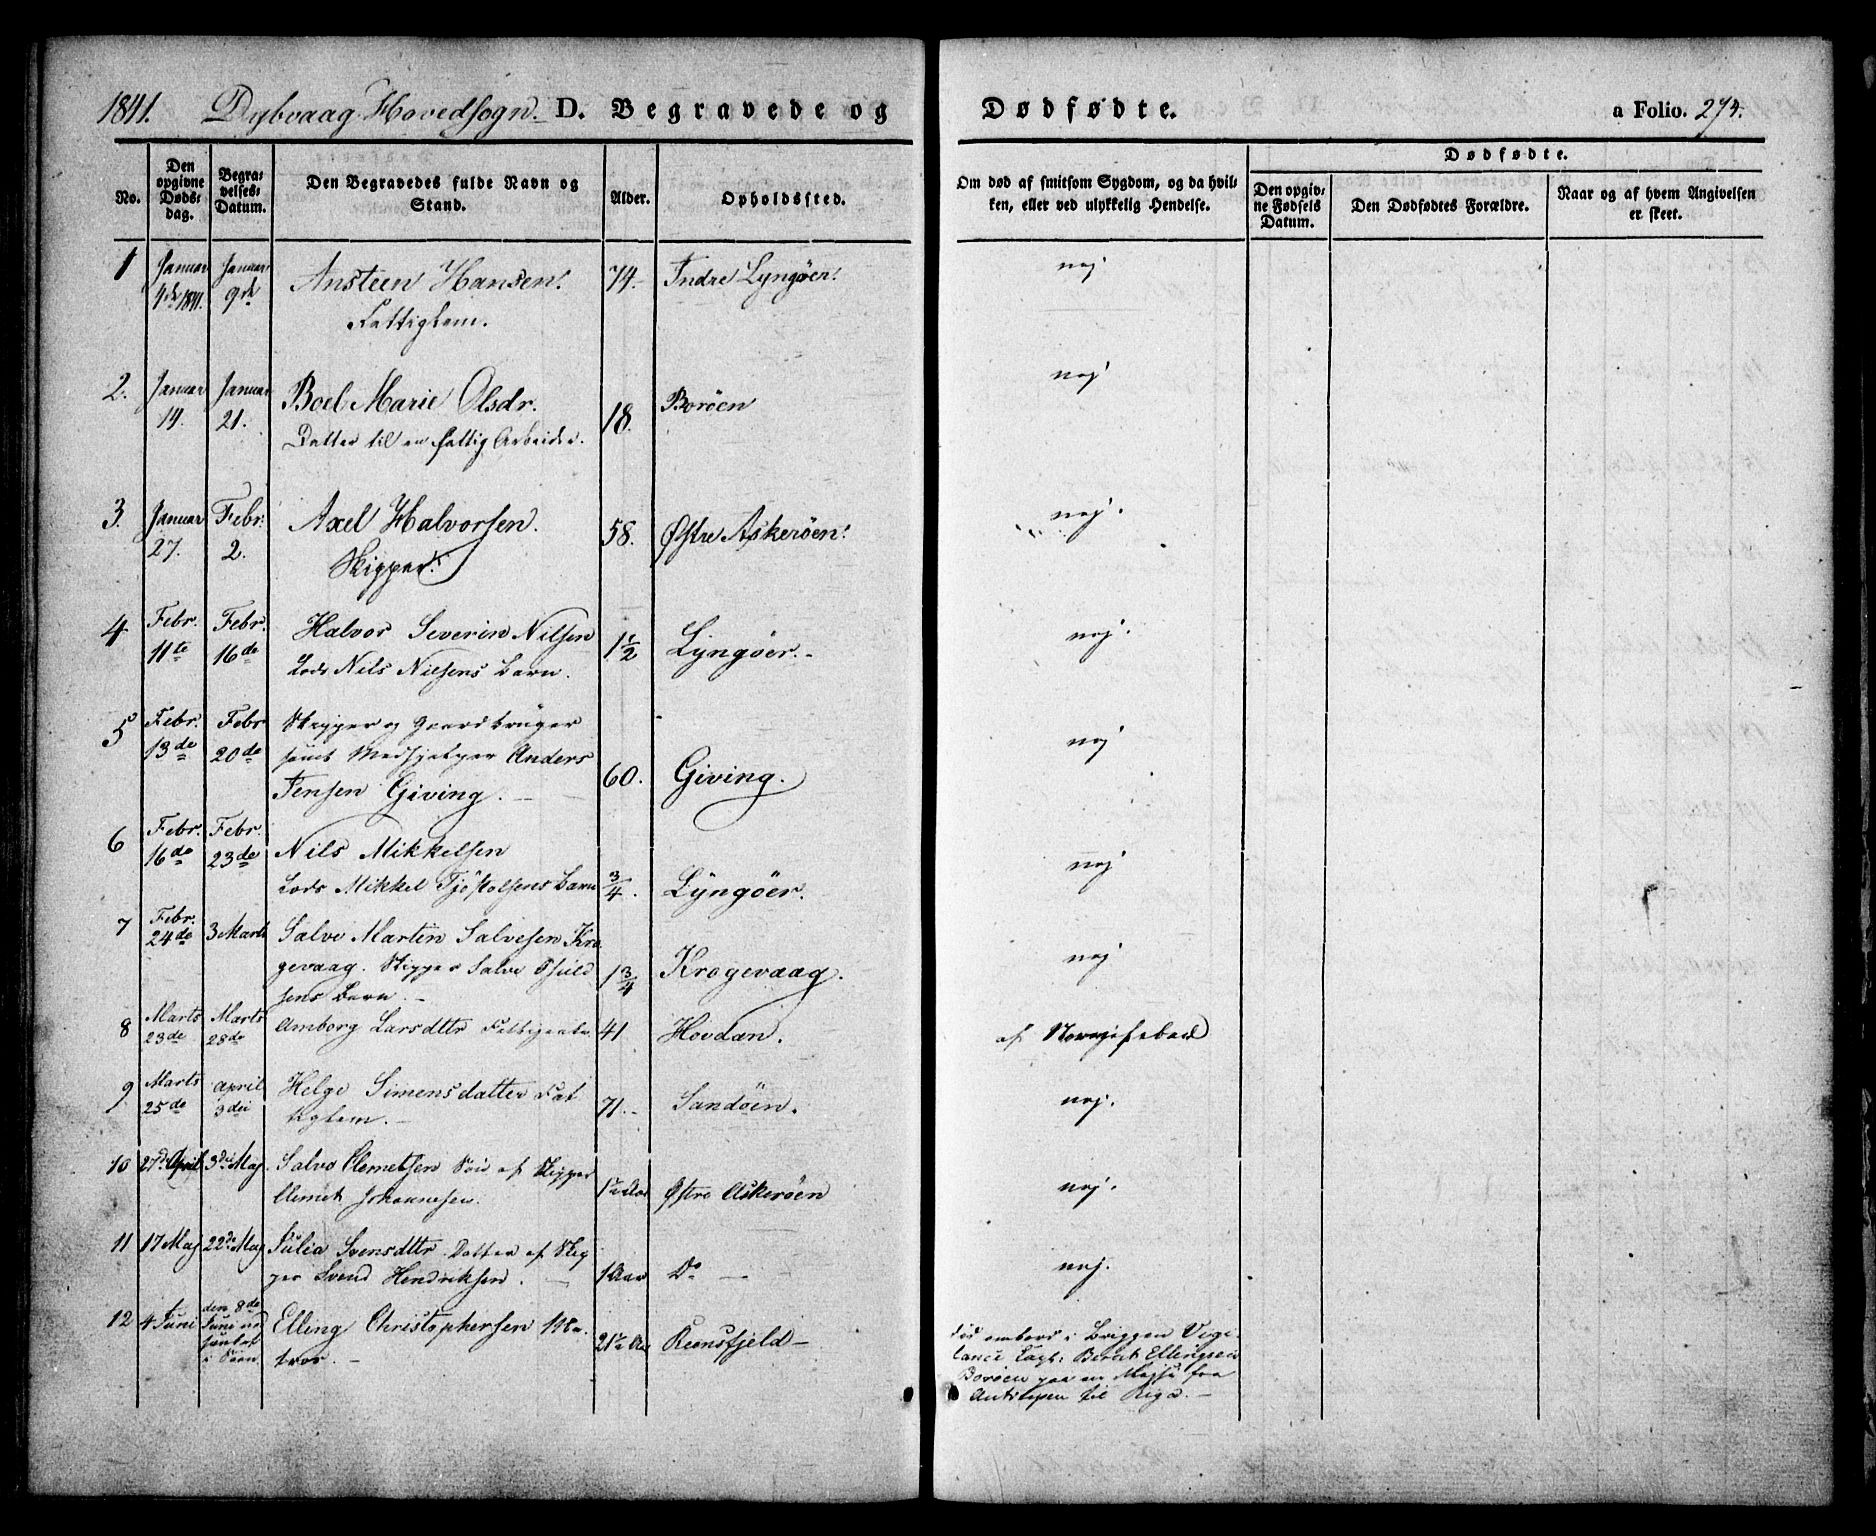 1841. Dybvaag Hovedsogn. D. Begravede og Dødfødte. a Folio. 274.
No.
Den opgivne Dødsdag.
Begravelses-Datum.
Den Begravedes fulde Navn og Stand.
Alder.
Opholdssted.
Om død af smitsom Sygdom, og da hvilken, eller ved ulykkelig Hendelse.
Dødfødte.
Den opgivne Fødsels Datum.
Den Dødfødtes Forældre.
Naar og af hvem Angivelsen er skeet.
1 Januar Januar Ansteen Hansen. 74. Indre Lyngöer. nej
4de 1841. 9de Fattiglem.
2. Januar Januar Boel Marie Olsdr. 18. Boröen nej
14. 21. Datter til en fattig Arbeider.
3. Januar Febr. Axel Halvorsen. 58. Østre Askeröen. nej.
27. 2. Skipper.
4 Febr. Febr. Halvor Severin Nilsen 1½ Lyngöer. nej.
11te 16de Lods Nils Nielsens Barn.
5 Febr. Febr Skipper og Gaardbruger
13de 20de samt Medhjelper Anders nej
Jensen Giving. 60. Giving.
6 Febr. Febr. Nils Mikkelsen nej
16de 23de Lods Mikkel Tjöstolsens Barn ¾. Lyngöer.
7 Febr. 24de 3 Marts Salve Martin Salvesen Kro
gevaag. Skipper Salve 1¾ Krogevaag. nej
sens Barn.
8 Marts Marts Amborg Larsdttr 41 Hovdan. af
23de 28de
9 Marts April Helge Simensdatter Fat 71. Sandöen. nej.
25de 3die tiglem.
10 27de April 3die Maj. Salve Clemetsen Sön af Skipper
Clemet Johannesen. 1½ Aar Østre Askeröen nej.
11 17 Maj 22de Maj Julia Svensdttr Datter af Skip
per Svend Hendriksen. 1 Aar Do nej.
12 4 Juni den 8de Juni i Söen Elling Christophersen Ma
tros. 21½ Aar Reensfjeld
Död ombord i Briggen Vigi
lance Capt: Berent Ellingsen
Boröen paa en Rejse fra
Antwerpen til Riga.